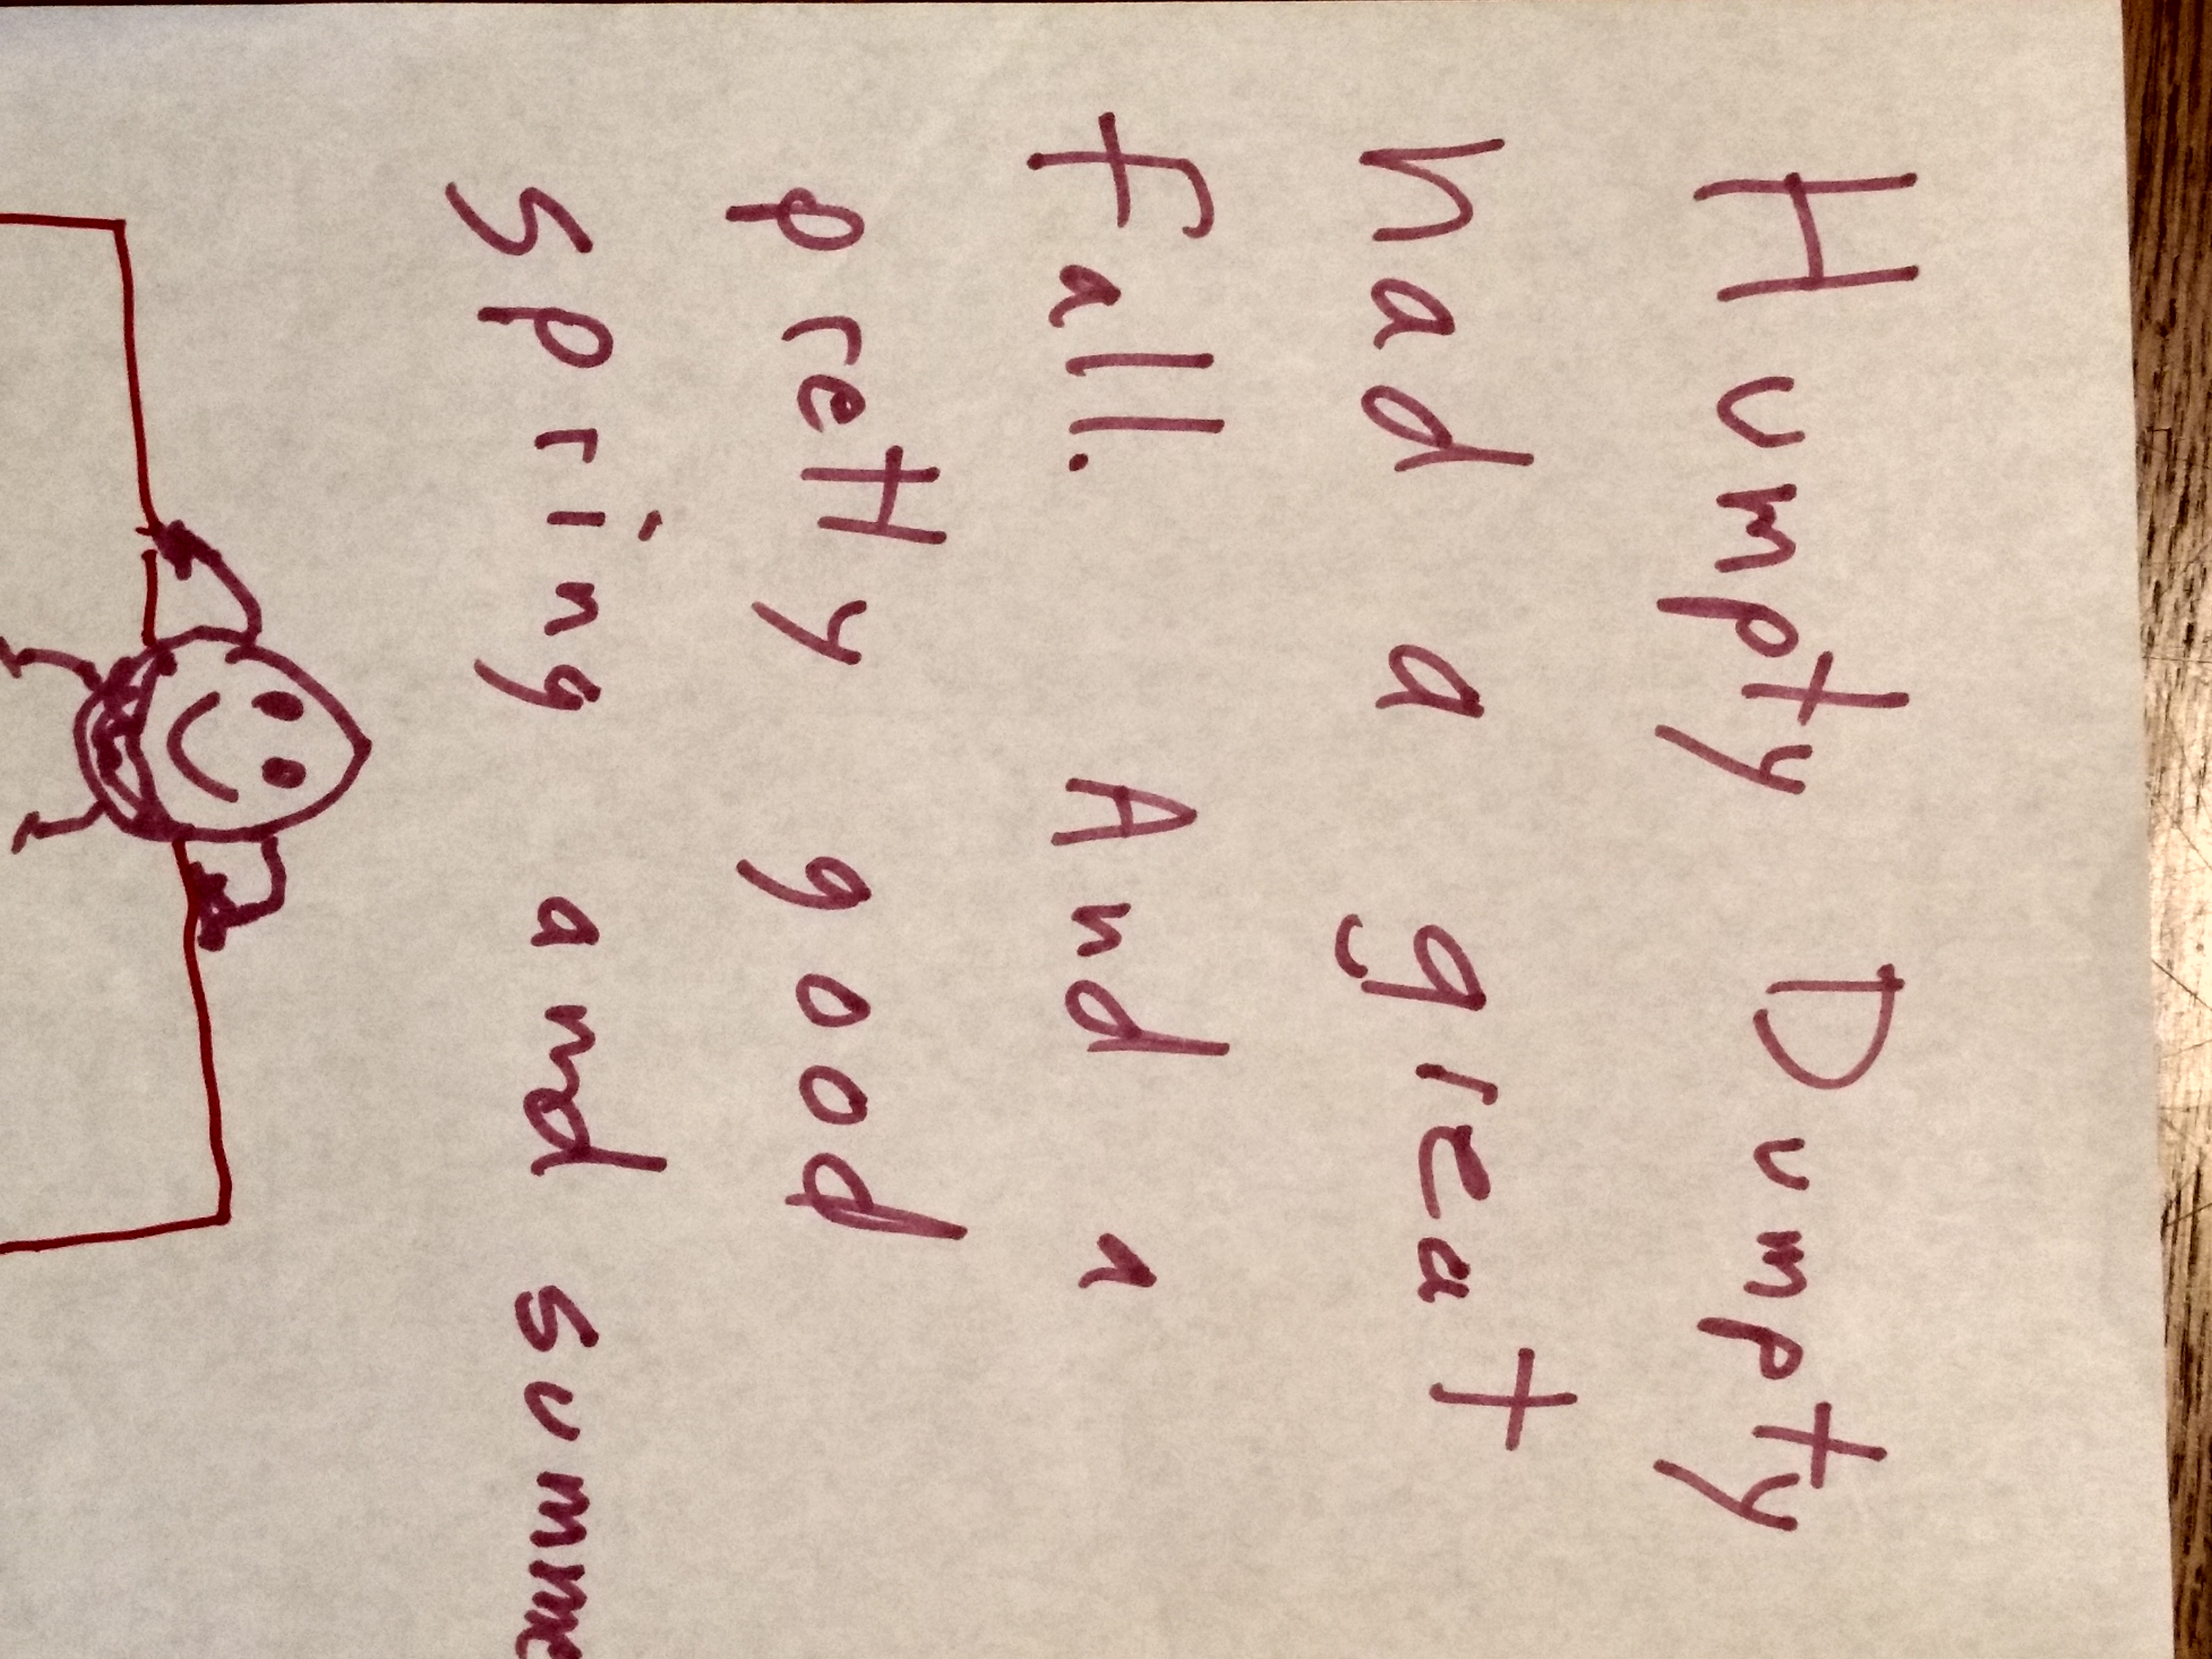 Humpty Dumpty
had a great
fall. And a
pretty good
spring and summe